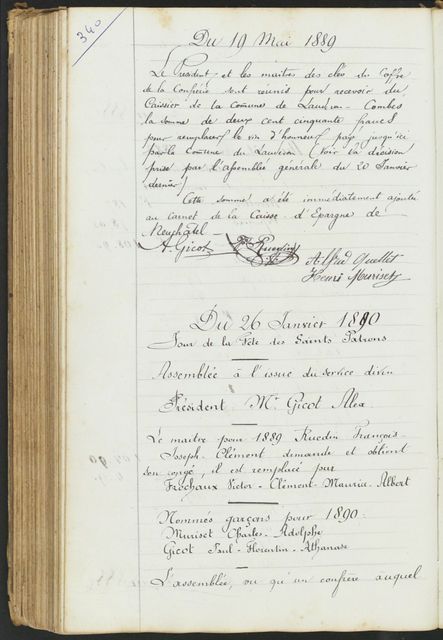 340
Du 19 Mai 1889
Le Président et les maitres des clés du Coffre
de la Confrérie sont réunis pour recevoir du
Caissier de la Commune de Landeron-Combes
la somme de deux cent cinquante francs
pour remplacer le vin d'honneur payé jusqu'ici
par la Commune du Landeron (voir la décision
prise par l'assemblée générale du 20 Janvier
dernier)
Cette somme a été immédiatement ajoutée
au carnet de la Caisse d'Epargne de
Neuchâtel -
A Gicot Ruedin
Alfred Quellet
Henri Muriset
Du 26 Janvier 1890
Jour de la Fête des Saints Patrons
Assemblée à l'issue du service divin
Président Mr Gicot Alex
Le maitre pour 1889 Ruedin François
Joseph-Clément demande et obtient
son congé, il est remplacé par
Frochaux Victor-Clément-Maurice-Albert
Nommés garçons pour 1890:
Muriset Charles-Adolphe
Gicot Paul-Florentin-Athanase
L'assemblée, vu qu'un confrère auquel